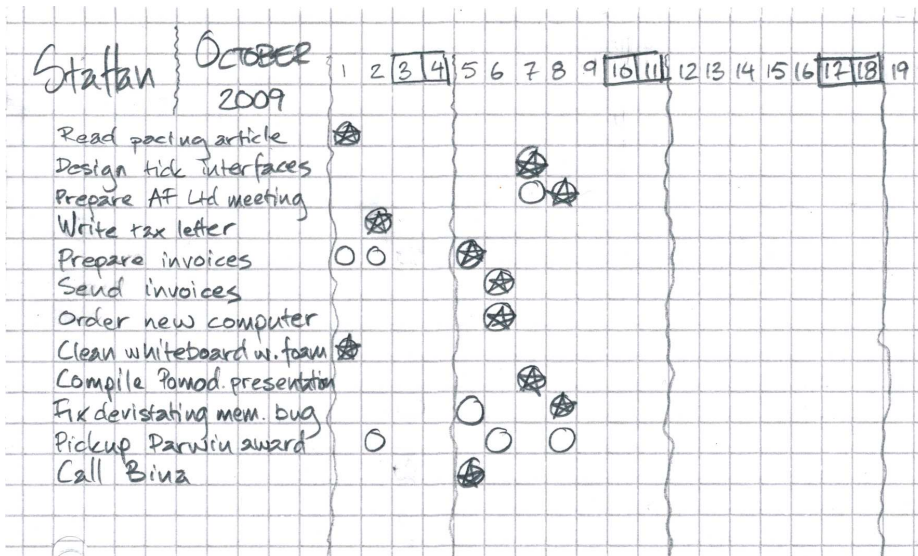 Staffan
OCTOBER
2009
1 2 3 4 5 6 7 8 9 10 11 12 13 14 15 16 17 18 19
Read pacing article
Design tick interfaces
Prepare AF Ltd meeting
Write tax letter
Prepare invoices
Send invoices
Order new computer
Clean whiteboard w. foam
Compile Pomod. presentation
Fix devistating mem. bug
Pickup Darwin award
Call Bina